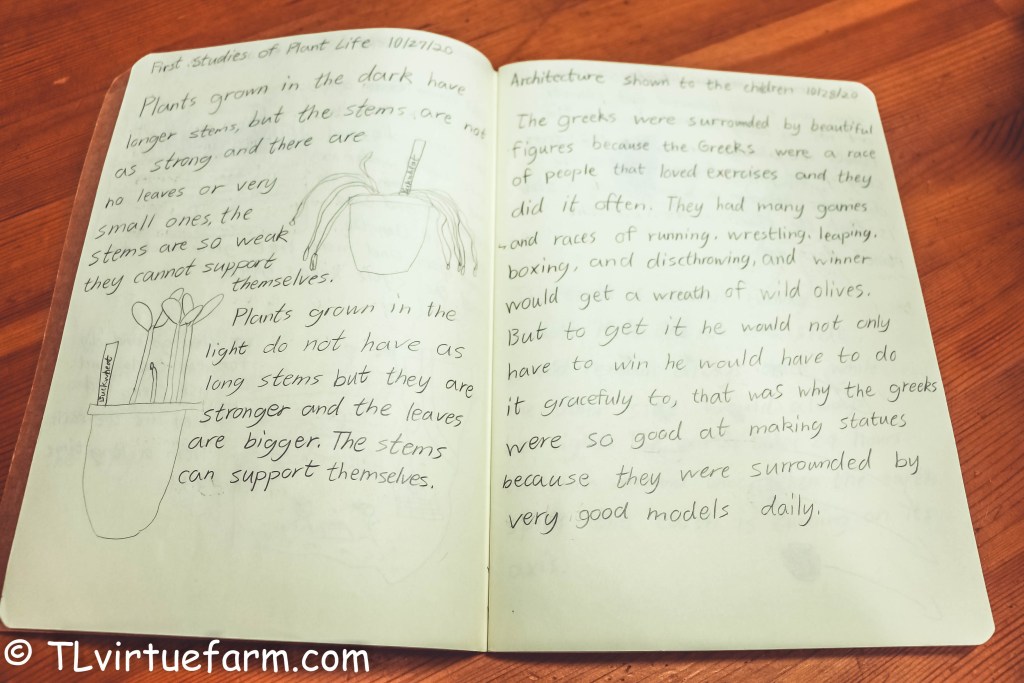 First Studies of Plant Life 10/27/20
Plants grown in the dark have
longer stems, but the stems are not
as strong and there are
no leaves or very
small ones, the
stems are so weak
they cannot support
themselves.
Buckwheat
Plants grown in the
light do not have as
long stems but they are
stronger and the leaves
are bigger. The stems
can support themselves.
Buckwheat
Architecture shown to the children 10/28/20
The greeks were surrounded by beautiful
figures because the Greeks were a race
of people that loved exercises and they
did it often. They had many games
and races of running, wrestling, leaping,
boxing, and discthrowing, and winner
would get a wreath of wild olives.
But to get it he would not only
have to win he would have to do
it gracefuly to, that was why the greeks
were so good at making statues
because they were surrounded by
very good models daily.
© TLvirtuefarm.com